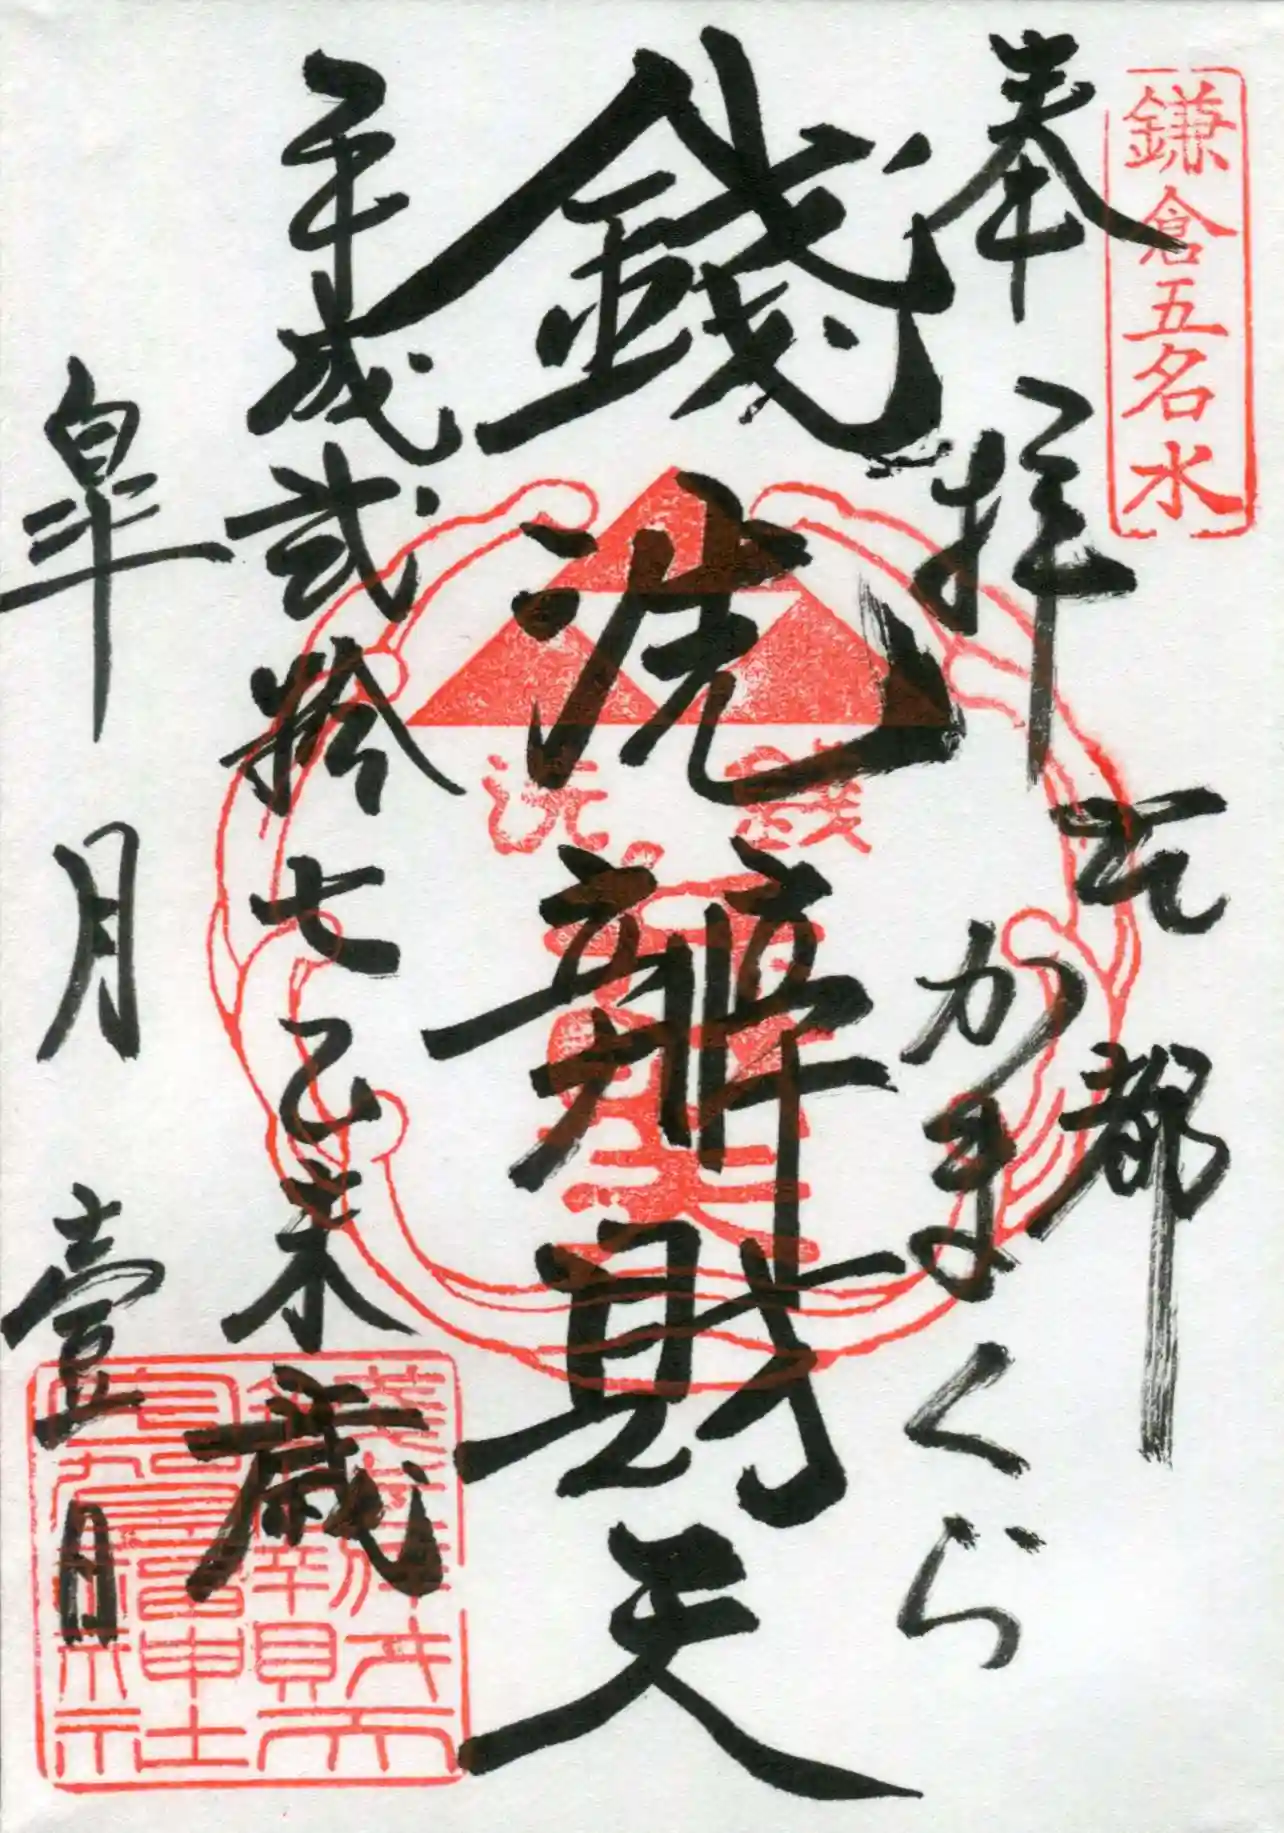 鎌倉五名水
奉拝
古都
かまくら
錢洗辨財天
平成弐拾七乙未歳
皐月壹日
錢洗